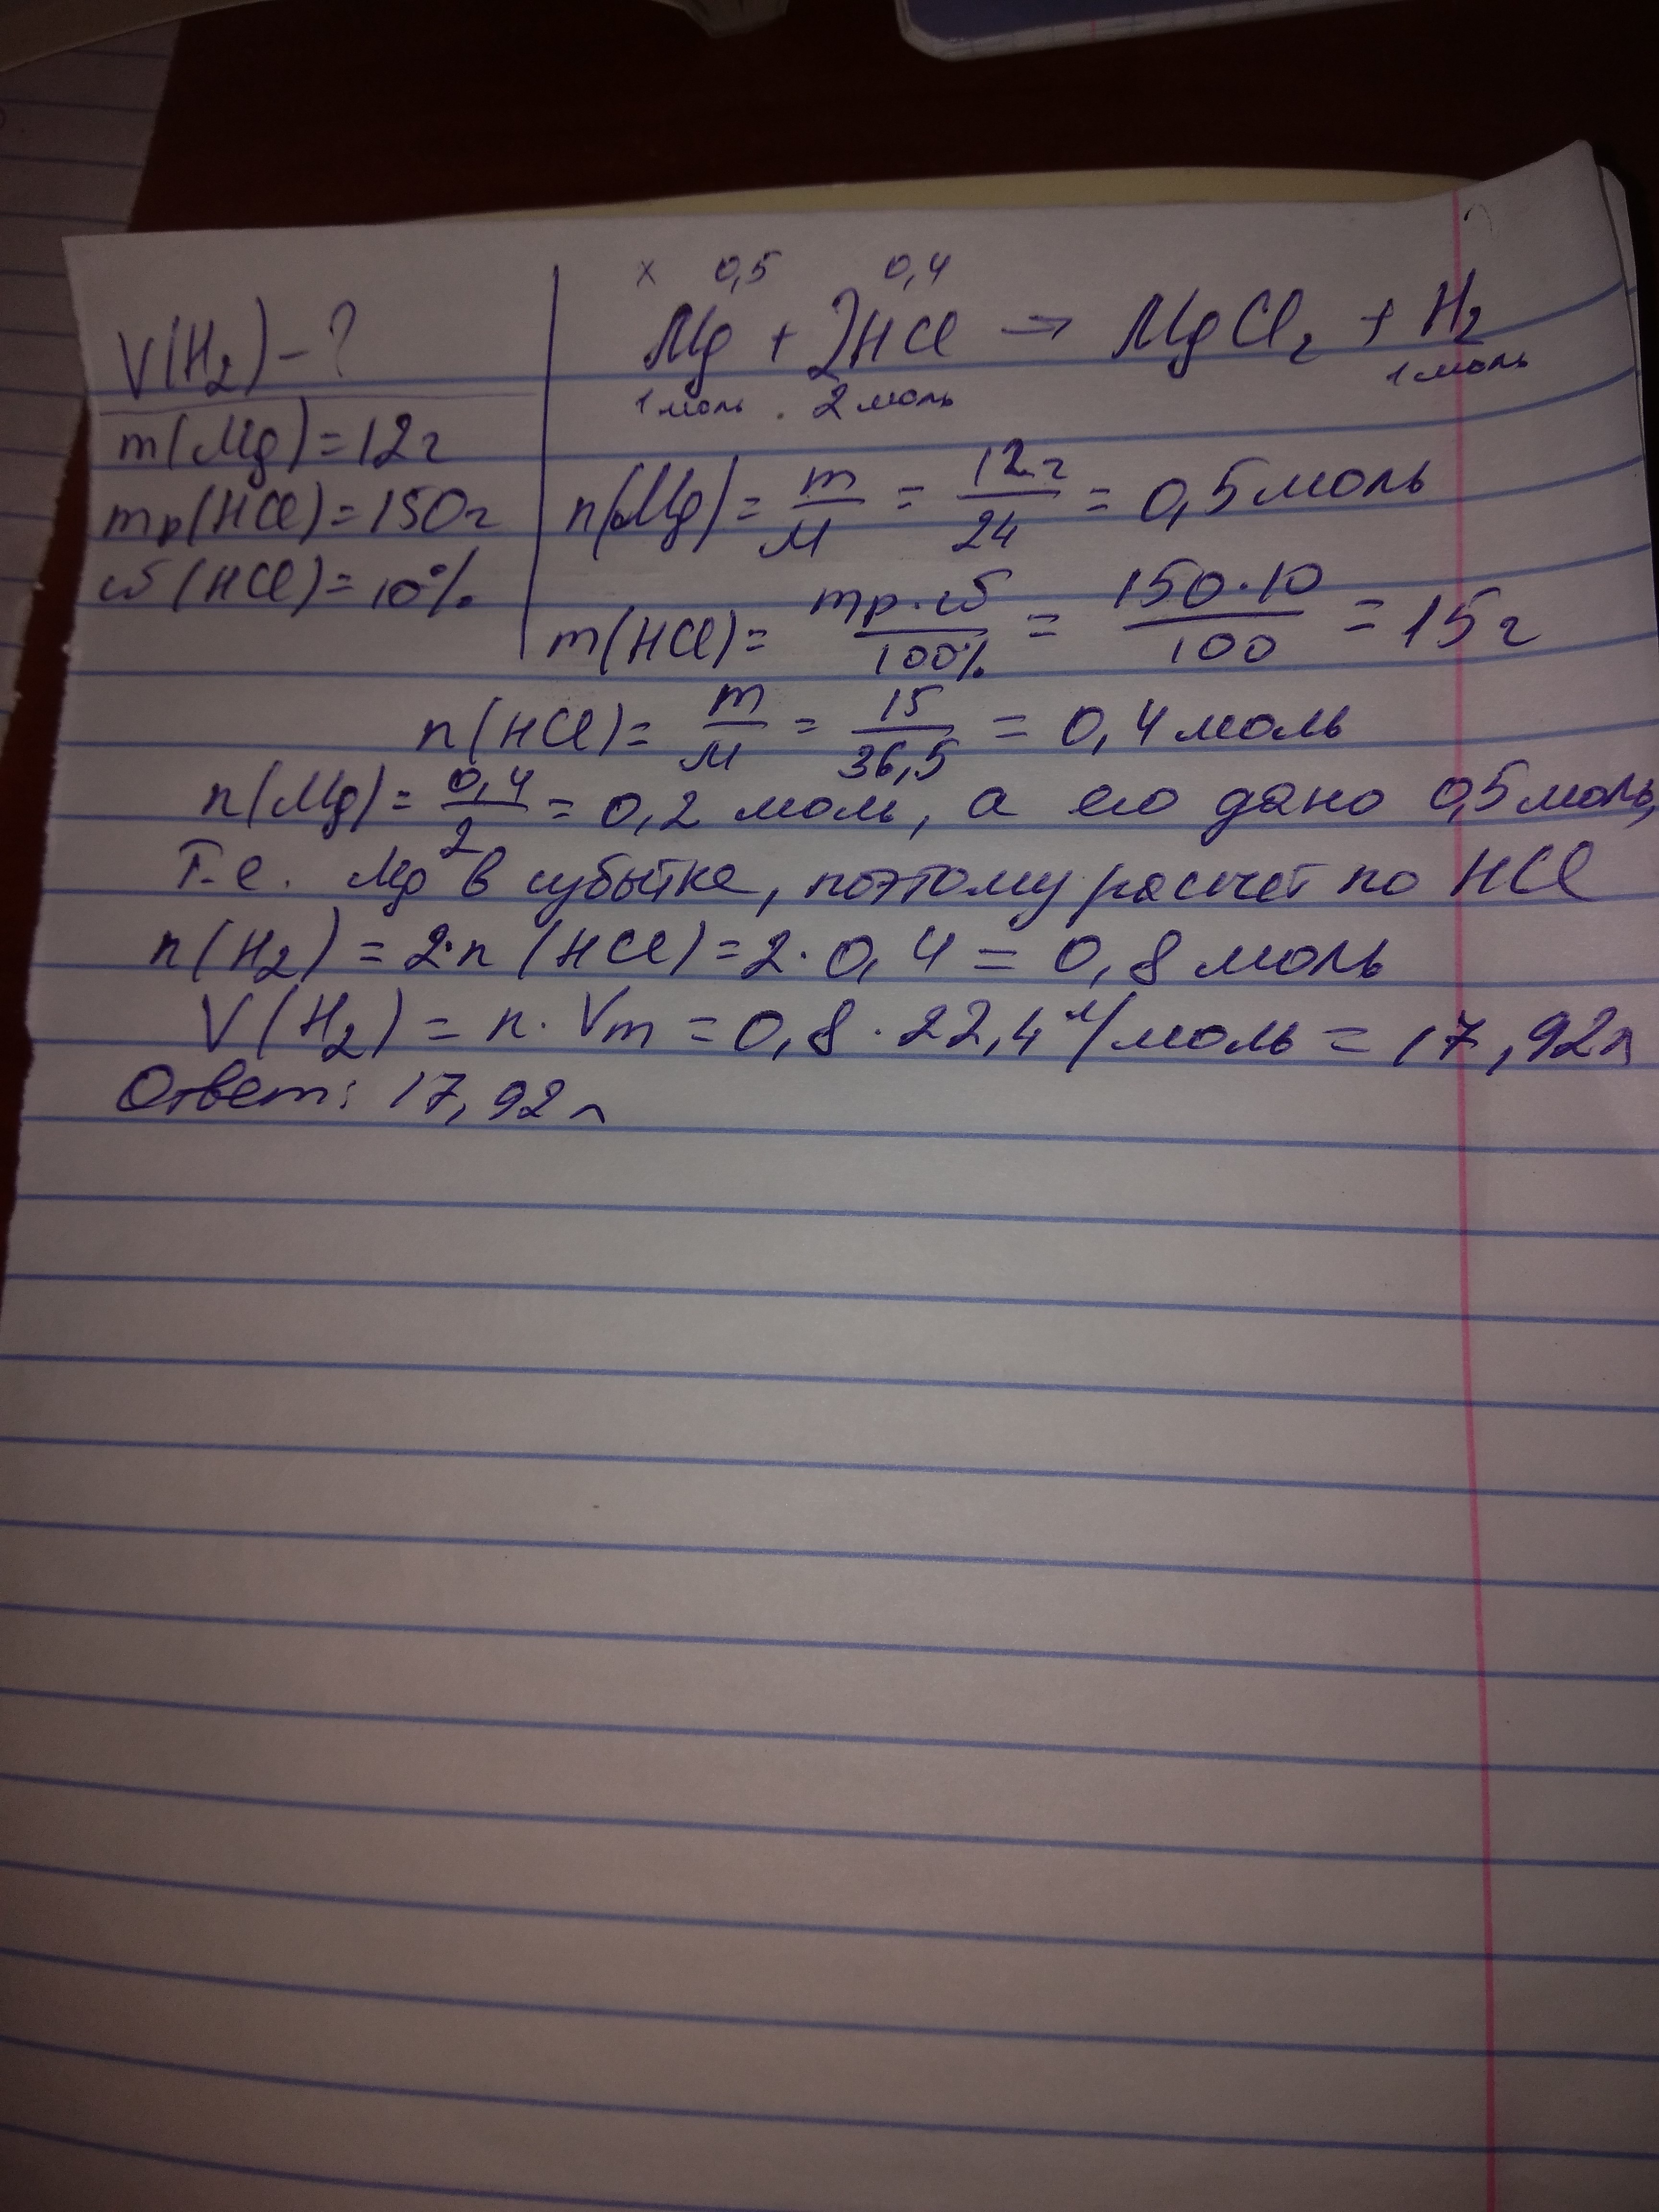 V(H₂) – ?
m(Mg) = 12 г
mр(HCl) = 150 г
ω(HCl) = 10%
x 0,5 0,4
Mg + 2HCl → MgCl₂ + H₂
1 моль . 2 моль 1 моль
n(Mg) = m/M = 12 г/24 = 0,5 моль
m(HCl) = mр·ω/100% = 150·10/100 = 15 г
n(HCl) = m/M = 15/36,5 = 0,4 моль
n(Mg) = 0,4/2 = 0,2 моль, а его дано 0,5 моль,
т.е. Mg в избытке, поэтому расчет по HCl
n(H₂) = 2·n(HCl) = 2·0,4 = 0,8 моль
V(H₂) = n·Vm = 0,8·22,4 л/моль = 17,92 л
Ответ: 17,92 л